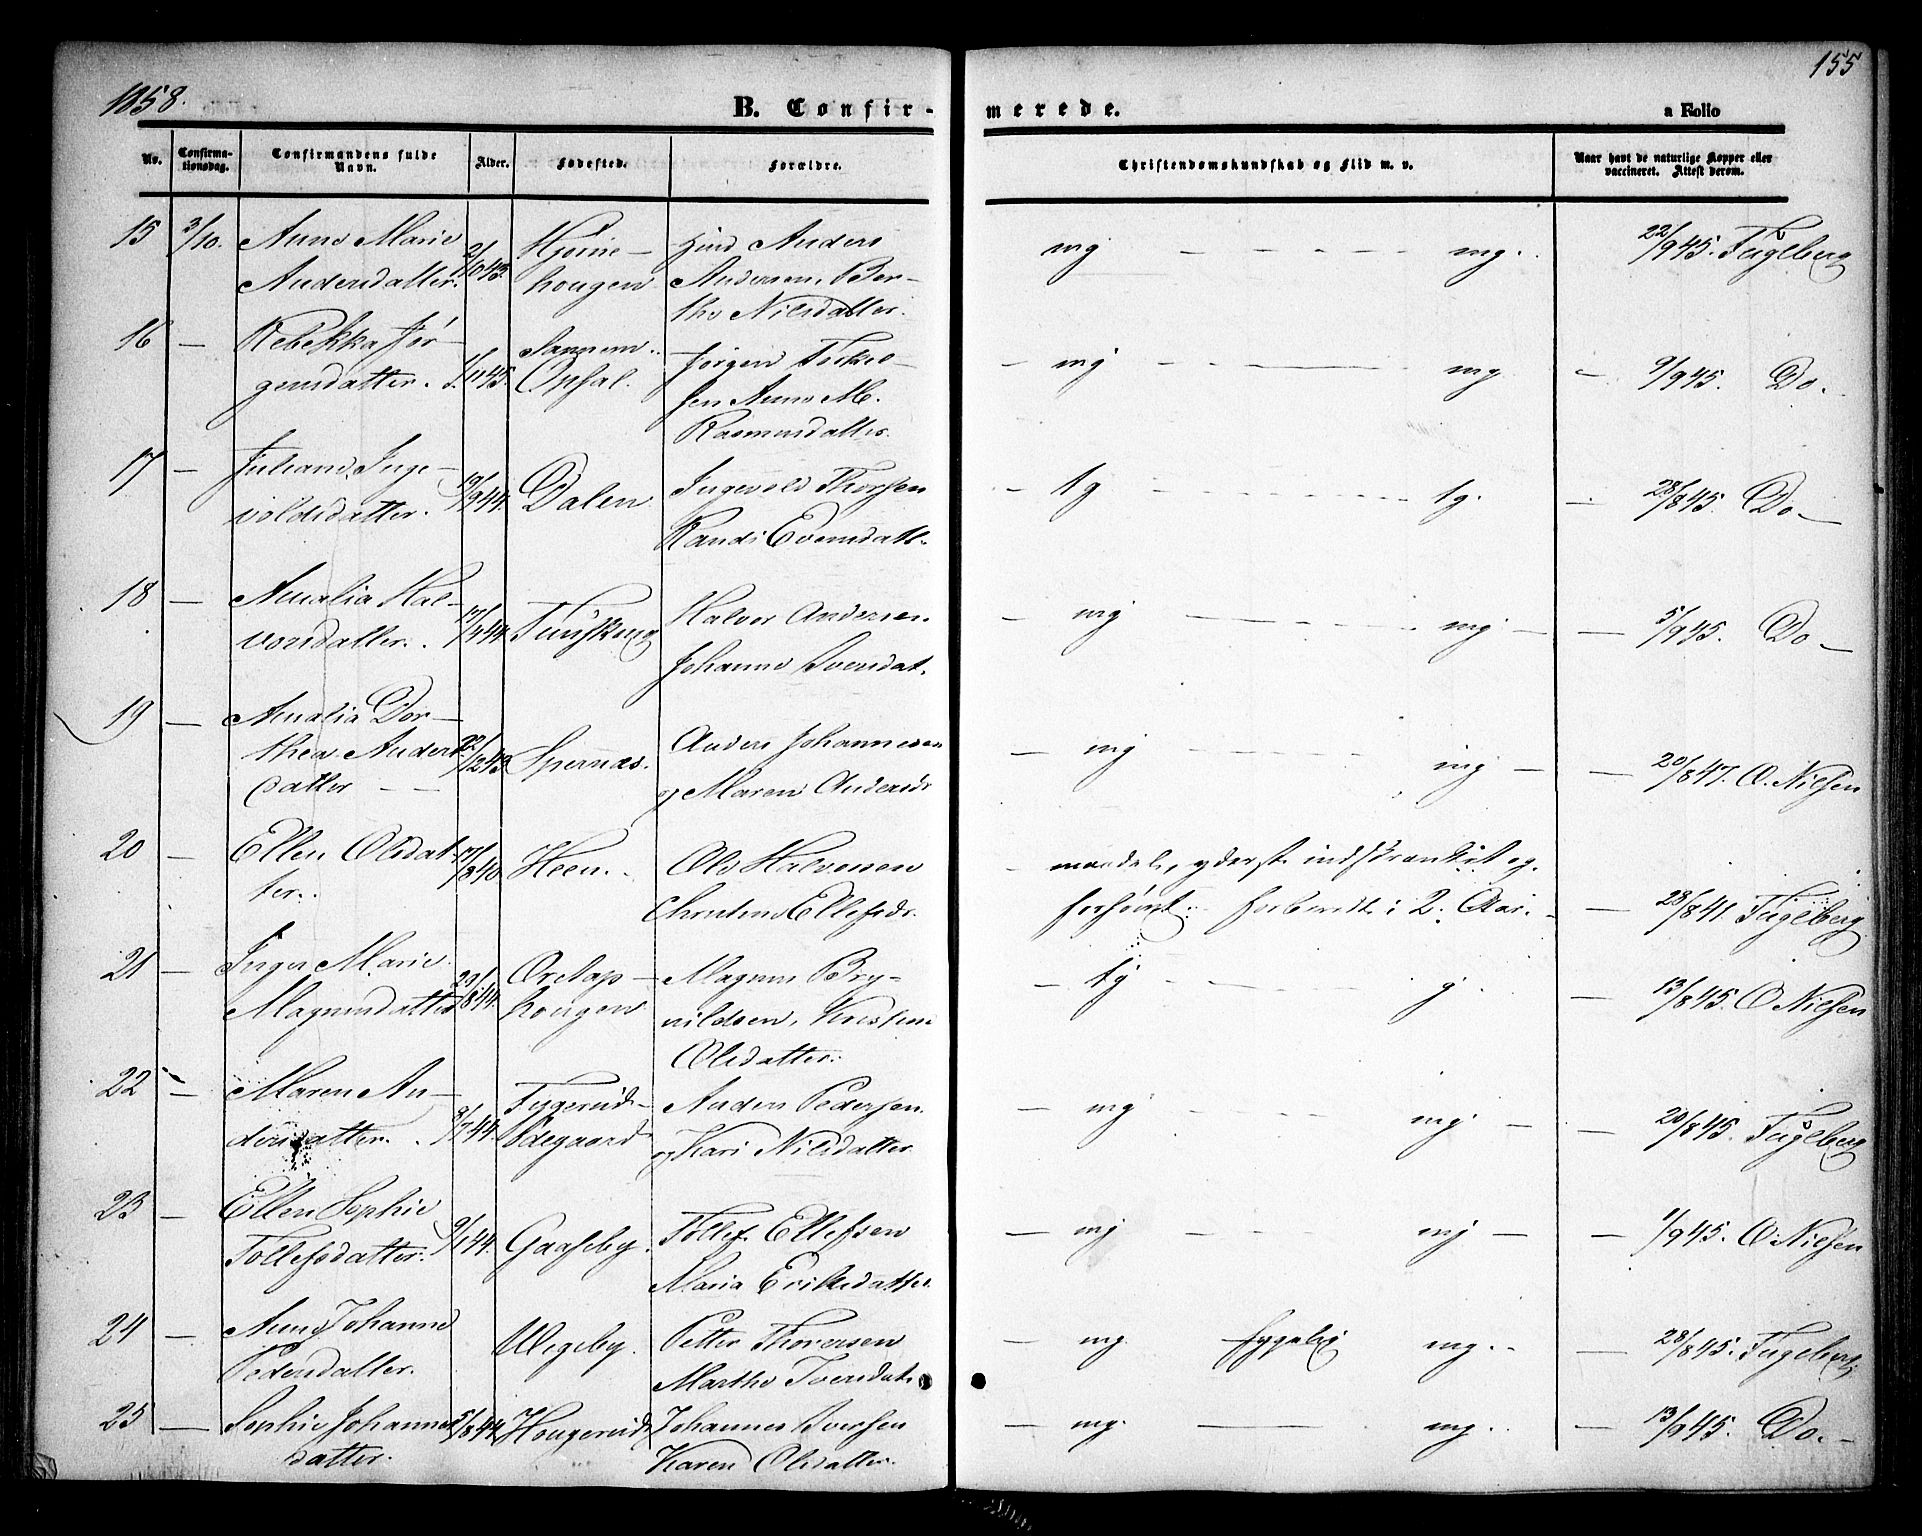 1858.
155
B. Confir-
merede.
a Folio
No.
Confirma-
tionsdag.
Confirmandens fulde
Navn.
Alder.
Fødested.
Forældre.
Christendomskundskab og Flid m. v.
Naar havt de naturlige Kopper eller
vaccineret. Attest derom.
15 3/10. Anne Marie
Andersdatter. 2/10 43. Hjerne-
hougen
Anders
Andersen, Ber-
the Nilsdatter.
mg - - - - - mg.
22/9 45. Fugleberg
16 — Rebekka Jør-
gensdatter. 1/11 45. Sannem..
Opsal.
Jørgen Tørkel-
sen Anne M.
Rasmusdatter.
mg - - - mg
9/9 45. Do.
17 — Juliane Inge-
voldsdatter. 19/9 44. Dalen
Ingevold Thorsen
Randi Evensdatt.
tg - - - tg.
28/8 45. Do—
18 — Amalia Hal-
vorsdatter. 17/4 44.
Halvor Andersen
Johanne Iversdat.
mg - - - mg —
5/9 45. Do—
19 — Amalia Dor-
thea Anders
datter — 22/12 43. Spernæs.
Anders Johannesen
og Maren Andersdr
mg - - - mg —
20/8 47. O. Nielsen
20 — Ellen Olsdat-
ter. 17/8 40. Heen.
Ole Halvorsen
Christine Ellefsdr.
maadel., yderst indskrænket og
forsømt. forberedt i 2 Aar.
28/8 41. Fugleberg
21 — Inger Marie
Magnusdatter 23/8 44.
hougen
Magnus Bry-
nildsen, Kirstine
Olsdatter.
tg - - - g.
13/8 45. O Nielsen
22 — Maren An-
dersdatter. 3/7 44. Fugerud-
ødegaard
Anders Pedersen
og Kari Nilsdatter
mg - - - mg —
20/8 45. Fugleberg
23 — Ellen Sophie
Tollefsdatter. 9/1 44. Gaaseby.
Tollef Ellefsen
Maria Eriksdatter
mg - - - mg —
1/9 45. O. Nielsen
24 — Anne Johanne
Pedersdatter. Wegeby.
Petter Thoresen
Marthe Iversdat.
mg. sygelig mg.
28/8 45. Fugleberg
25 — Sophie Johannes
datter. 5/8 44. Hougerud
Johannes Iversen
Karen Olsdatter.
mg. — mg.
13/9 45. Do.—